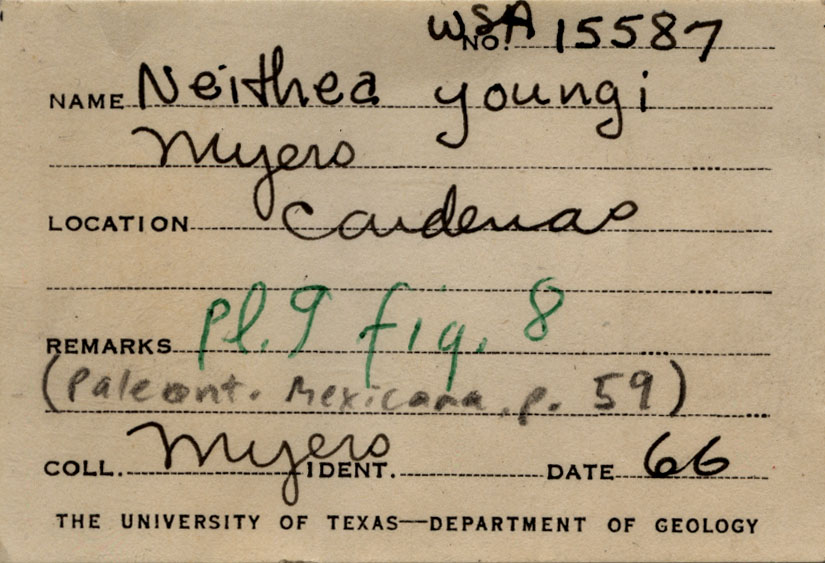 WSA
NO. 15587
NAME Neithea youngi
Myers
LOCATION Cardenas
REMARKS pl. 9 fig. 8
(Paleont. Mexicana, p. 59)
COLL. Myers IDENT. DATE 66
THE UNIVERSITY OF TEXAS—DEPARTMENT OF GEOLOGY